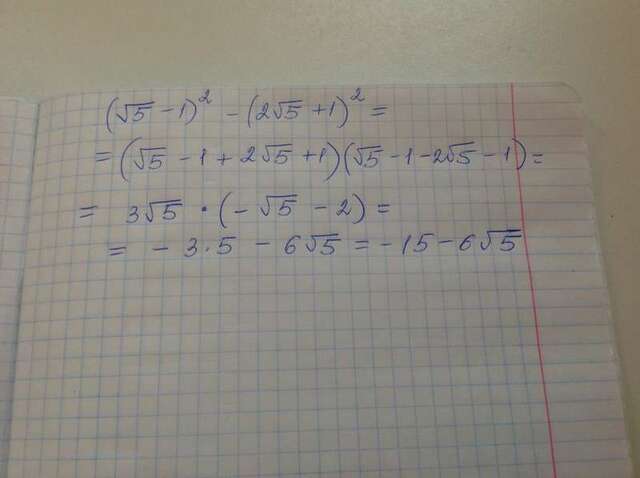 (√5 - 1)² - (2√5 + 1)² =
= (√5 - 1 + 2√5 + 1)(√5 - 1 - 2√5 - 1) =
= 3√5 · (- √5 - 2) =
= - 3 · 5 - 6√5 = - 15 - 6√5